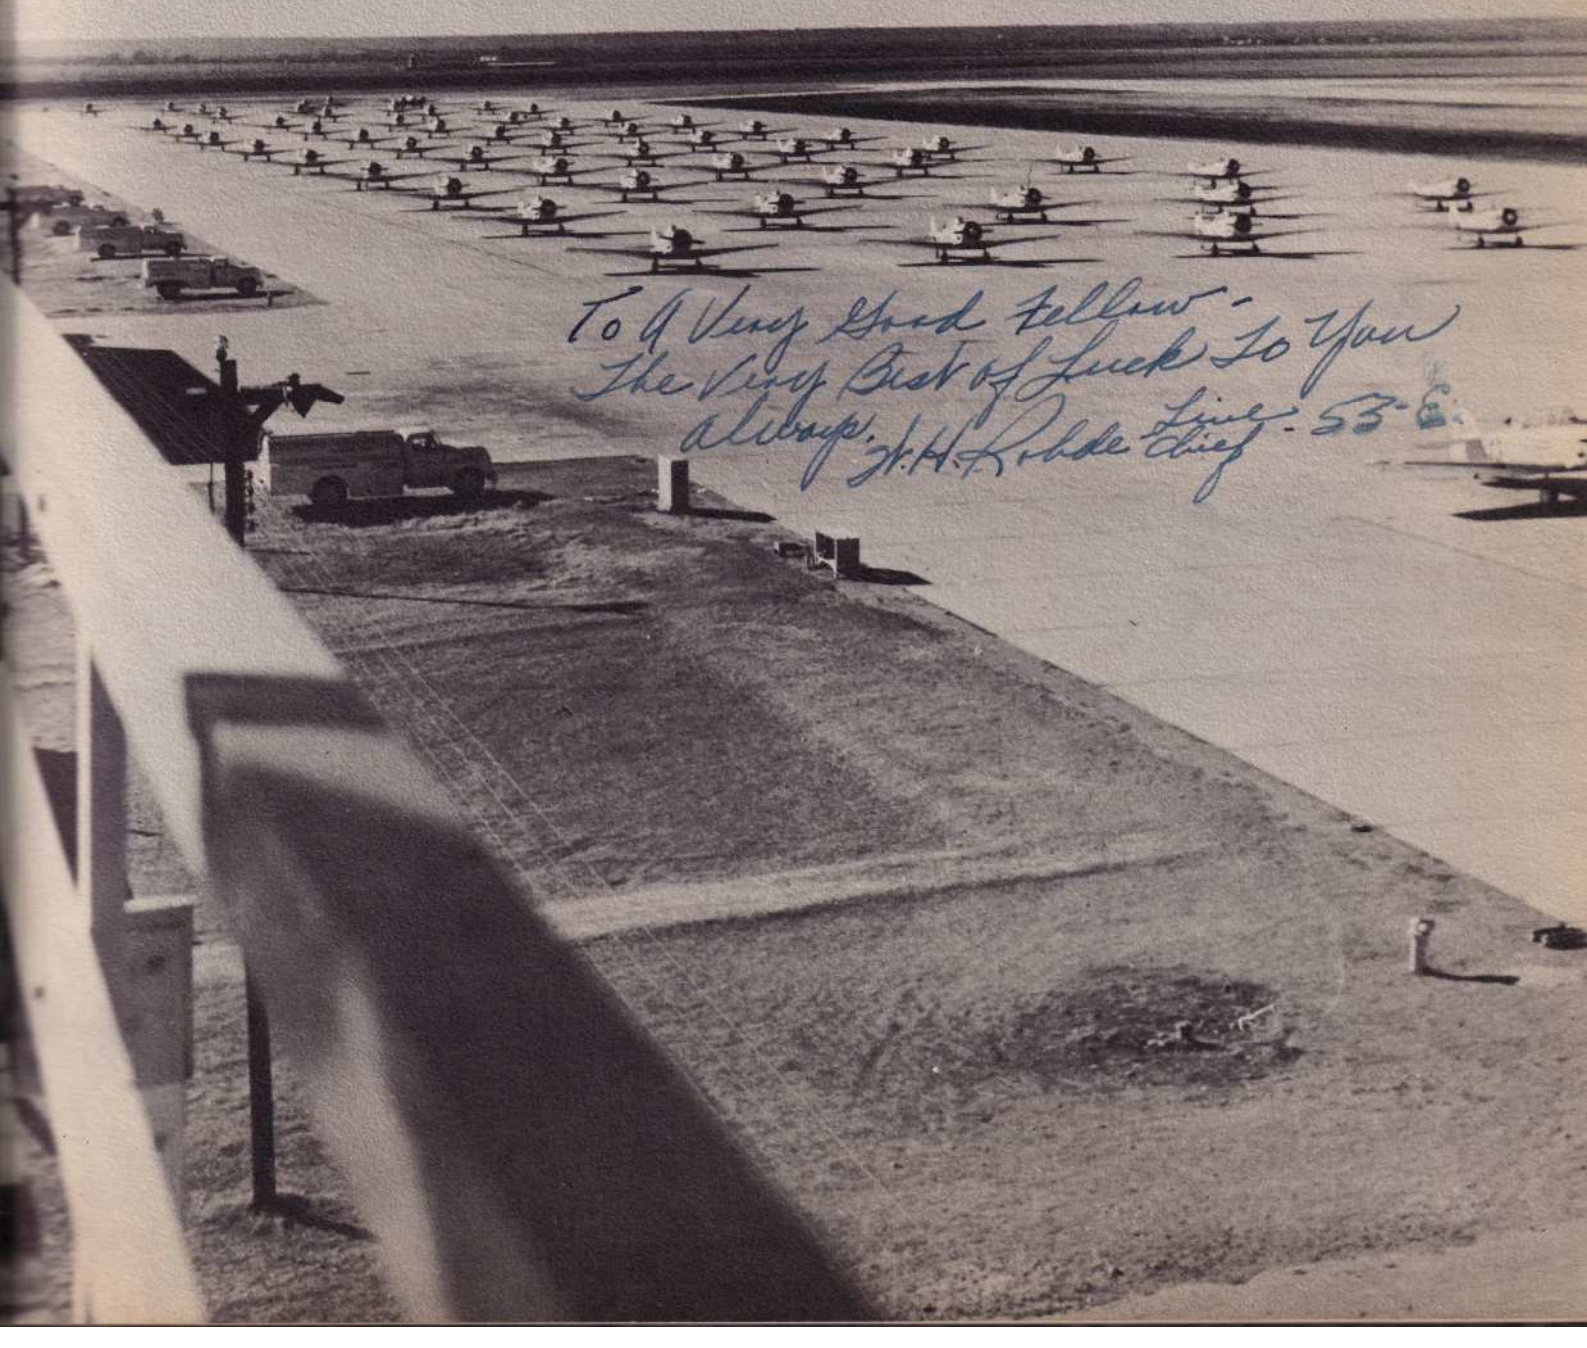 To A Very Good Fellow -
The Very Best of Luck To You
Always.
W.H. Rohde Line Chief - 53-E.